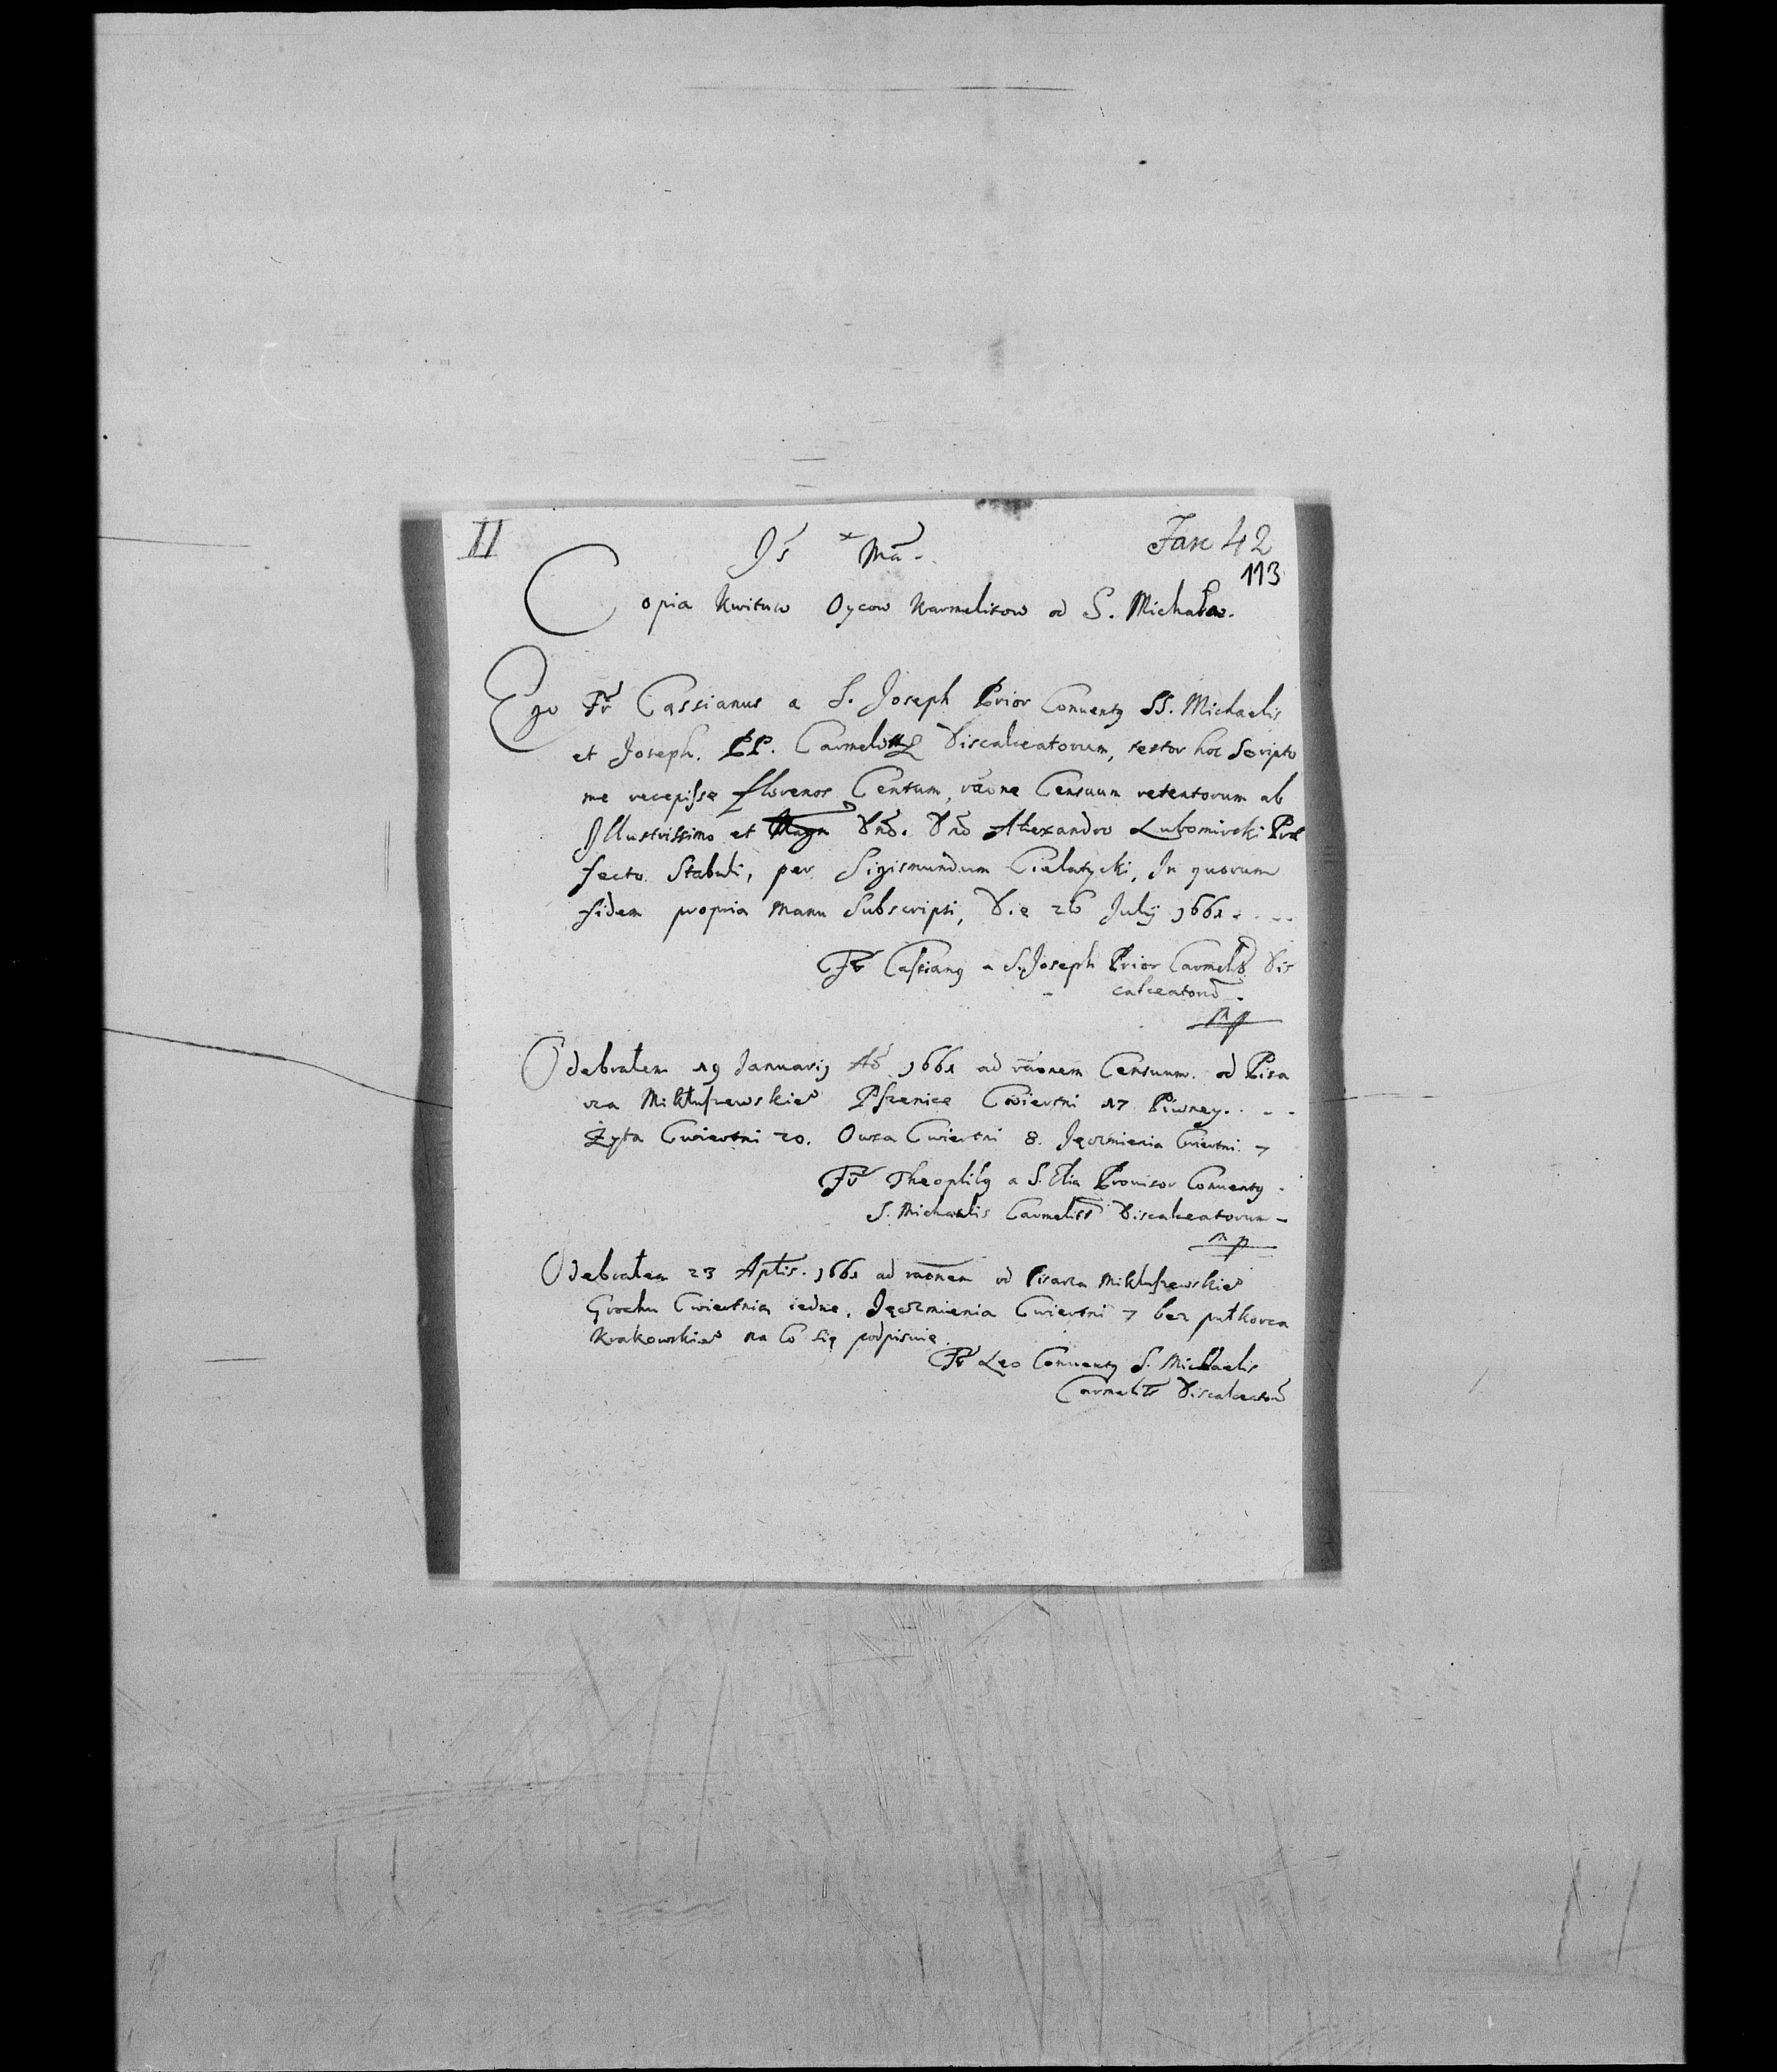 II
Js + Ma.
Fasc 42
113
Copia Kwitow Oycow Karmelitow od S. Michala.
Ego Fr Cassianus a S. Joseph Prior Conventus SS. Michaelis
et Joseph. PP. Carmelit Discalceatorum, testor hoc Scripto
me recepisse florenos Centum, raone Censuum retentorum ab
Illustrissimo et Magn Dno. Dno Alexandro Lubomirski Prae
fecto Stabuli, per Sigismundum Cielatycki, In quorum
fidem propria manu Subscripsi, Die 26 July 1661. . . .
Fr Cassianus a S. Joseph Prior Carmelit Dis
calceatoru.
mp
Odebrałem 19 Januarij Ao 1661 ad raonem Censuum. od Pisa
rza Mikłuszewskieo Pszenice Cwiertni 17 Piwney. . . .
Żyta Cwiertni 20. Owsa Cwiertni 8. Jęczmienia Cwiertni. 7
Fr Theophilus a S. Elia Provisor Conventus.
S. Michaelis Carmelitt Discalceatorum.
mp
Odebrałem 23 Aplis. 1661 ad raonem od Pisarza Mikłuszewskieo
Grochu Cwiertnią iedne. Jęczmienia Cwiertni 7 bez pułkorca
Krakowskieo na Co się podpisuie.
Fr Leo Conventus S. Michaelis
Carmelitt Discalceatoru